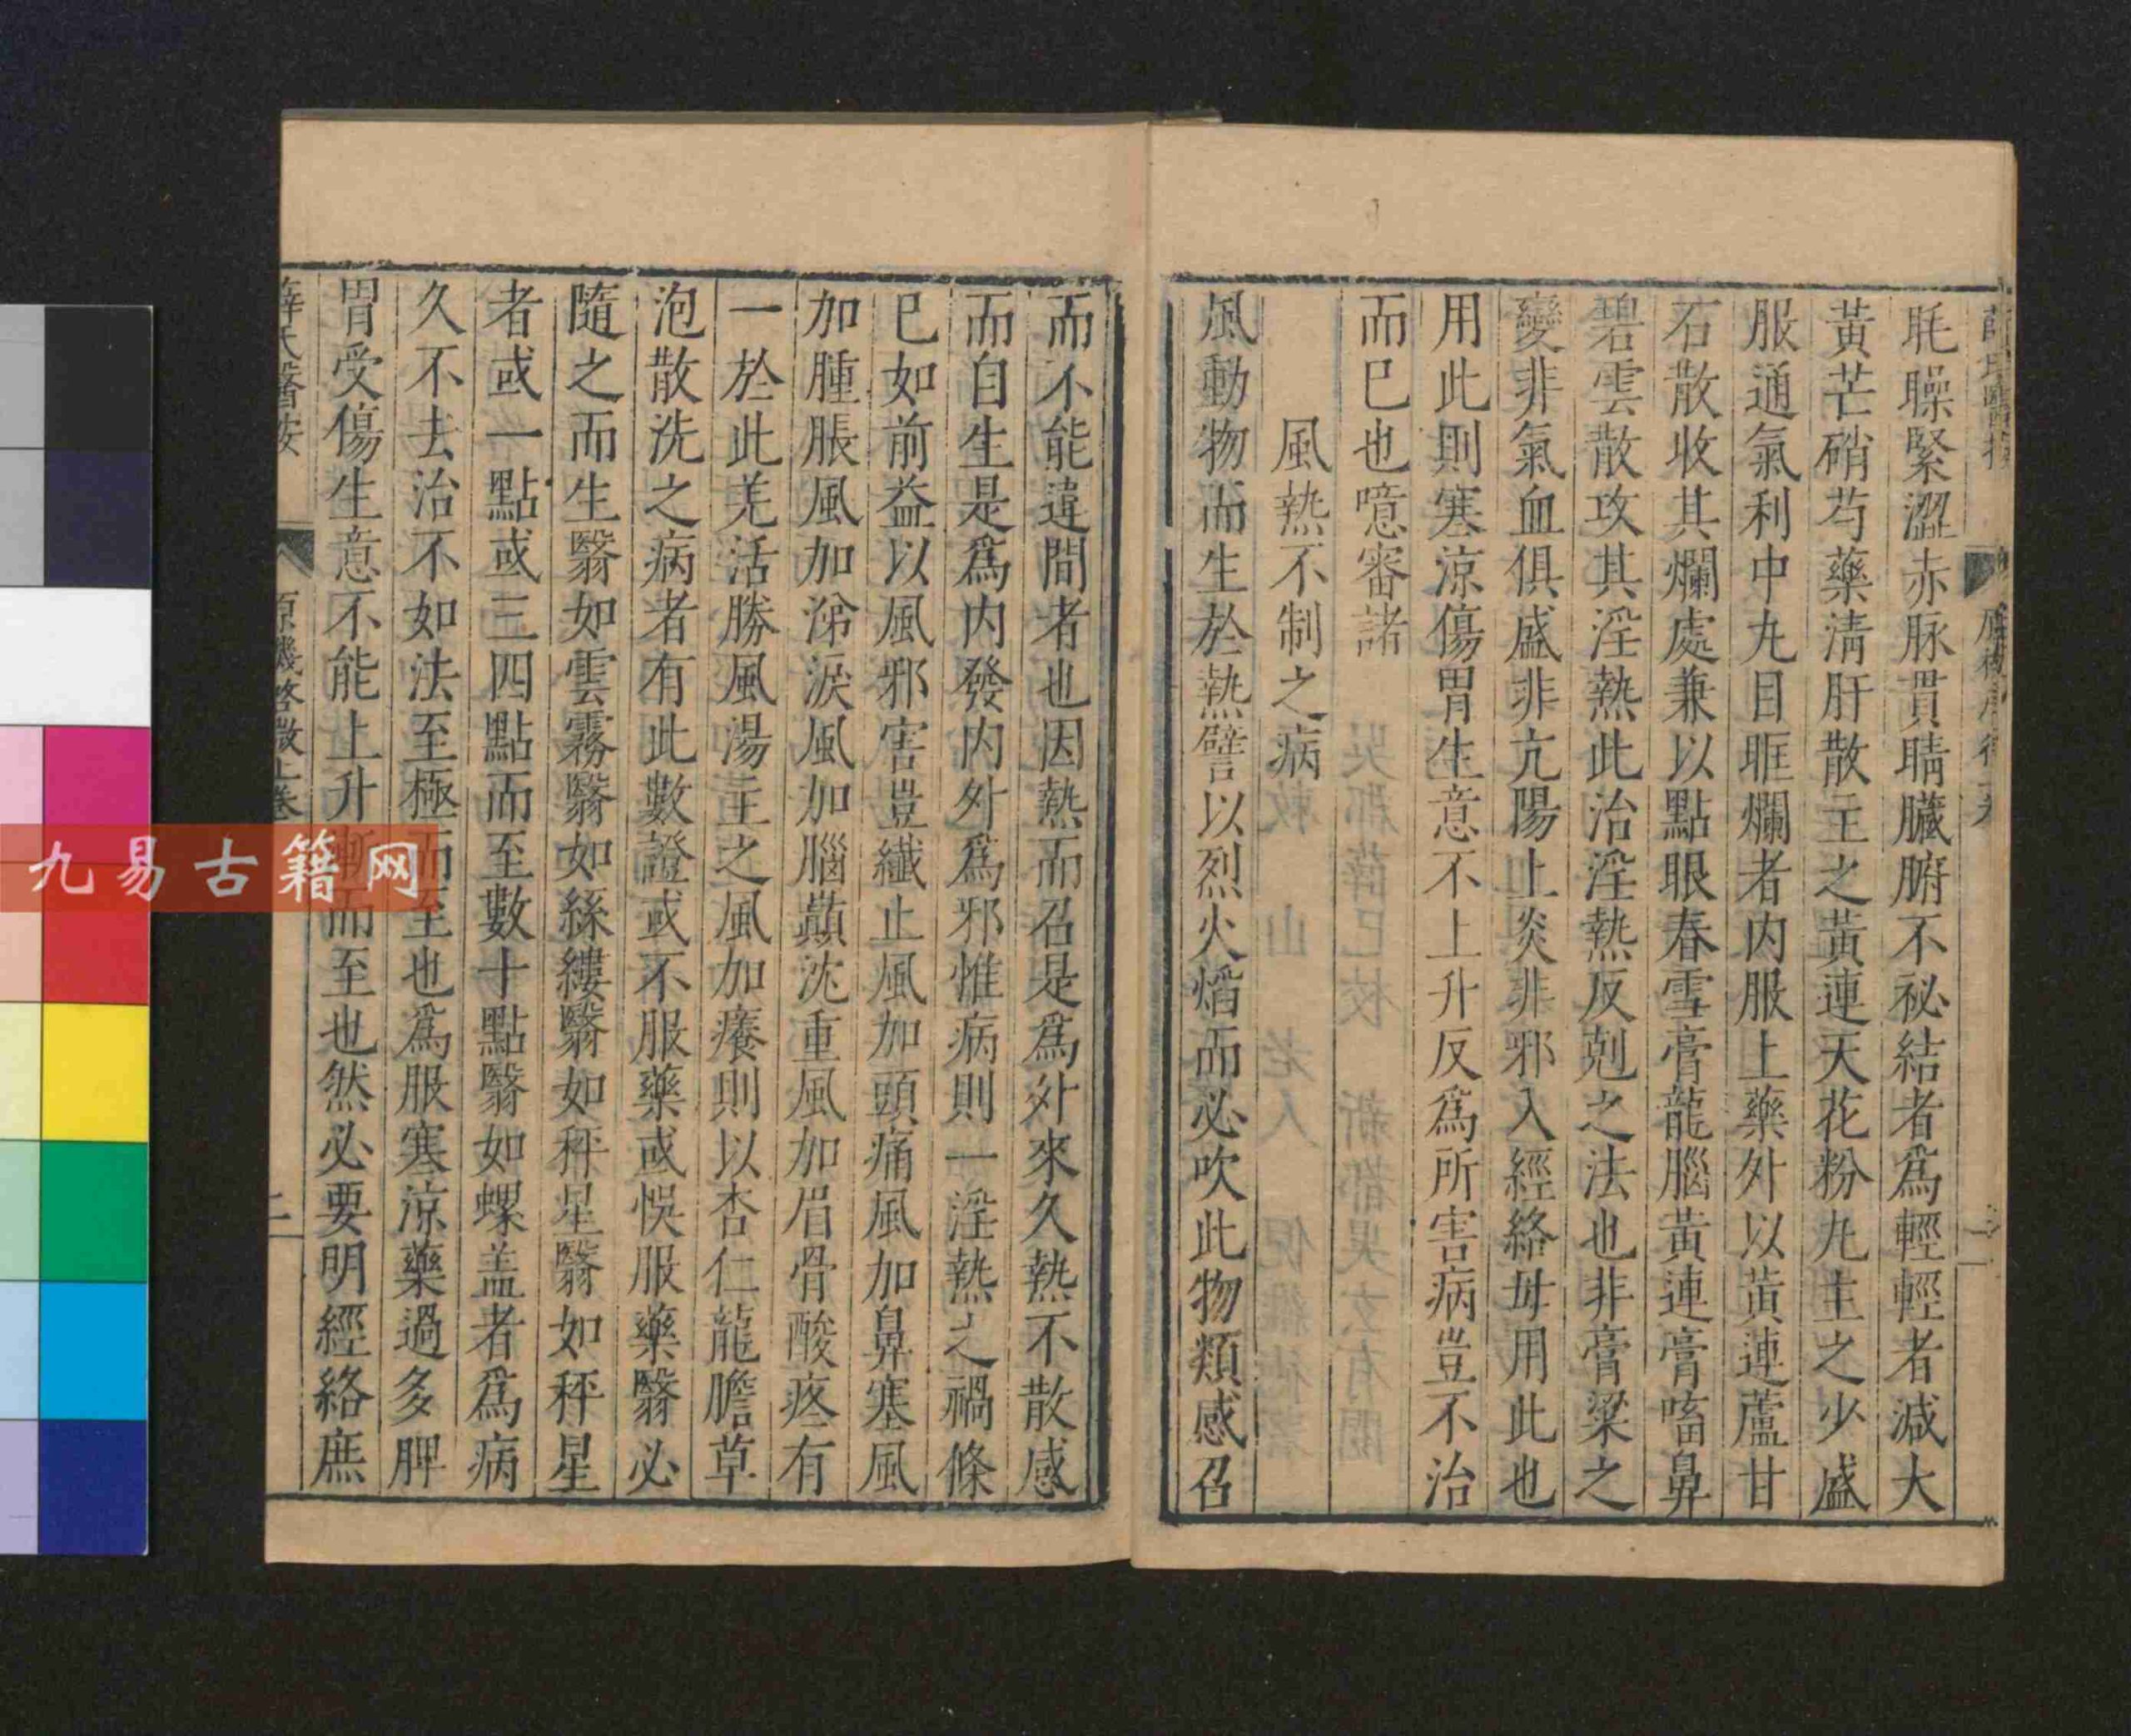 眊矂緊澀赤脉貫睛臟腑不祕結者爲輕輕者減大
黃芒硝芍藥清肝散主之黃連天花粉丸主之少盛
服通氣利中丸目眶爛者内服上藥外以黃連蘆甘
石散收其爛處兼以點眼春雪膏龍腦黃連膏㗜鼻
碧雲散攻其淫熱此治淫熱反剋之法也非膏梁之
變非氣血俱盛非亢陽上炎非邪入經絡毋用此也
用此則寒涼傷胃生意不上升反爲所害病豈不治
而已也噫審諸
風熱不制之病
風動物而生於熱譬以烈火焰而必吹此物類感召
而不能違間者也因熱而召是爲外來久熱不散感
而自生是爲内發内外爲邪惟病則一淫熱之禍條
已如前益以風邪害豈纖止風加頭痛風加鼻塞風
加腫脹風加涕淚風加腦巔沈重風加眉骨酸疼有
一於此羌活勝風湯主之風加癢則以杏仁龍膽草
泡散洗之病者有此數證或不服藥或悞服藥翳必
隨之而生翳如雲霧翳如絲縷翳如秤星翳如秤星
者或一點或三四點而至數十點翳如螺盖者爲病
久不去治不如法至極而至也爲服寒涼藥過多脾
胃受傷生意不能上升漸而至也然必要明經絡庶
薛氏醫按
原機啓微上卷
二
九易古籍网